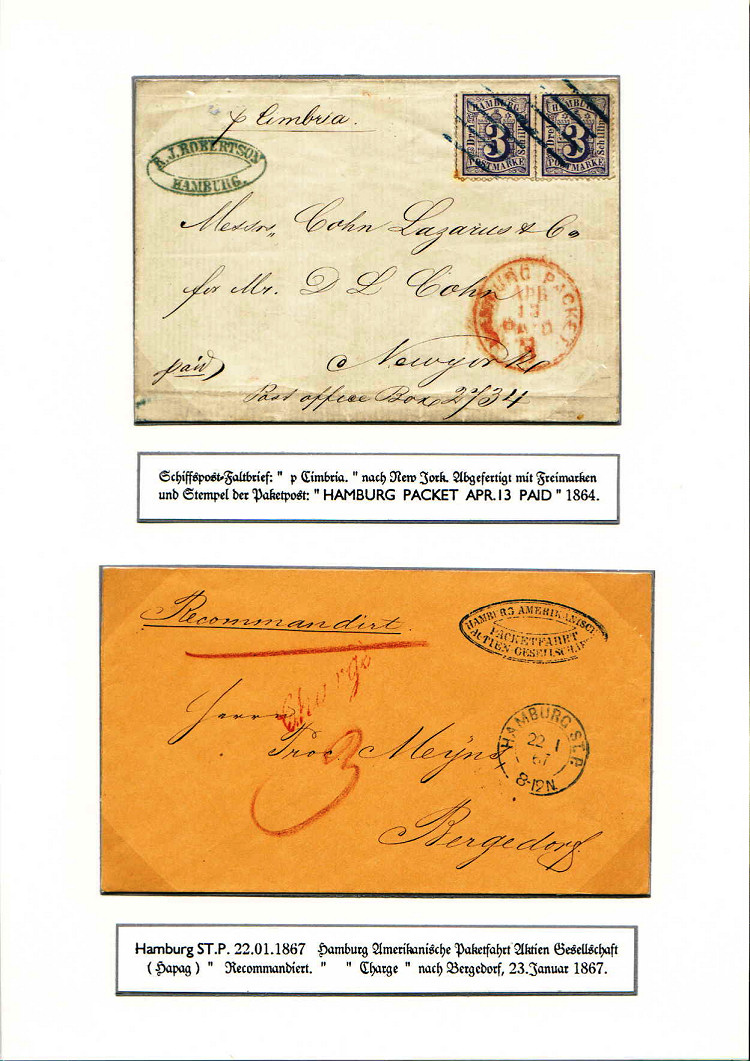 p Cimbria.
HAMBURG
Drei
3
Schilling
POSTMARKE
HAMBURG
Drei
3
Schilling
POSTMARKE
R.J. ROBERTSON
HAMBURG.
Messrs, Cohn Lazarus & Co
for Mr. D L Cohn
HAMBURG PACKET
APR
13
PAID
paid
Newyork
Post office Box 2734
Schiffspost-Faltbrief: " p Cimbria. " nach New York. Abgefertigt mit Freimarken
und Stempel der Paketpost: " HAMBURG PACKET APR.13 PAID " 1864.
Recommandirt
HAMBURG AMERIKANISCHE
PACKETFAHRT
ACTIEN GESELLSCHAFT
Chargé
Herrn
Proc Meyns
3
HAMBURG ST.P.
22 1
67
8-12N.
Bergedorf
Hamburg ST.P. 22.01.1867 Hamburg Amerikanische Paketfahrt Aktien Gesellschaft
(Hapag) " Recommandiert. " " Charge " nach Bergedorf, 23.Januar 1867.